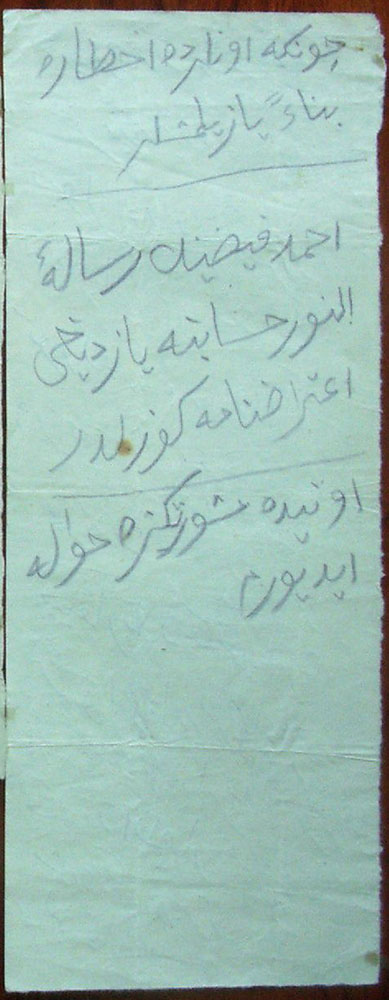 چونكه اونلرده اخطاره
بناءً يازيلمشلر
احمد فيضينك رسالۀ
النور حسابنه يازديغى
اعتراضنامه كوزلدر
اونيده مشورتكزه حواله
ايديورم